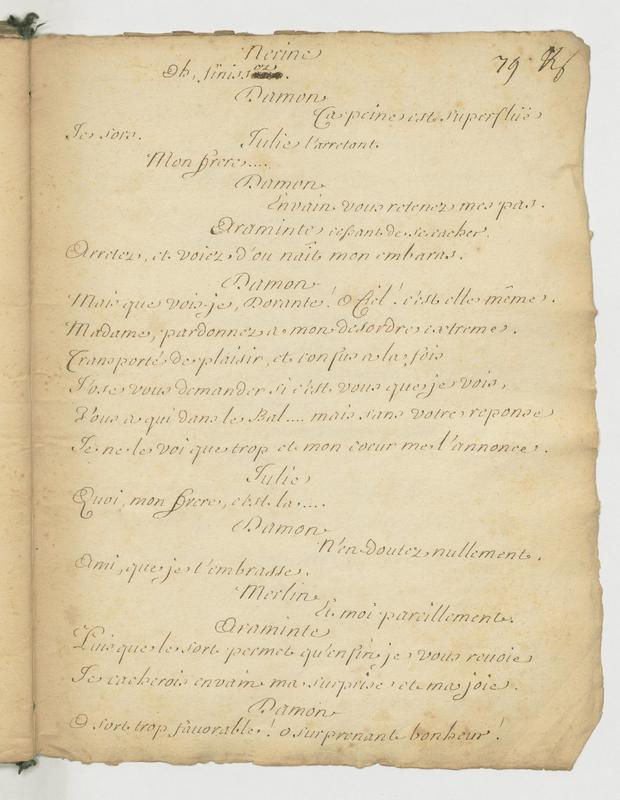 79
Nerine
Oh, finissez.
Damon
La peine est superflüe
Je sors.
Julie l'arretant.
Mon frere....
Damon
Envain vous retenez mes pas.
Araminte cessant de se cacher.
Arretez, et voiez d'ou naît mon embaras.
Damon
Mais que vois-je, Dorante! o Ciel! c'est elle même.
Madame, pardonnez a mon desordre extreme.
Transporté de plaisir, et confus a la fois
J'ose vous demander si c'est vous que je vois,
Vous a qui dans le Bal.... mais sans votre reponse
Je ne le voi que trop et mon coeur me l'annonce.
Julie
Quoi, mon frere, c'est la....
Damon
N'en doutez nullement.
Ami, que je t'embrasse.
Merlin
Et moi pareillement.
Araminte
Puisque le sort permet qu'enfin je vous revoie
Je cacherois envain ma surprise et ma joie.
Damon
O sort trop favorable! o surprenant bonheur!